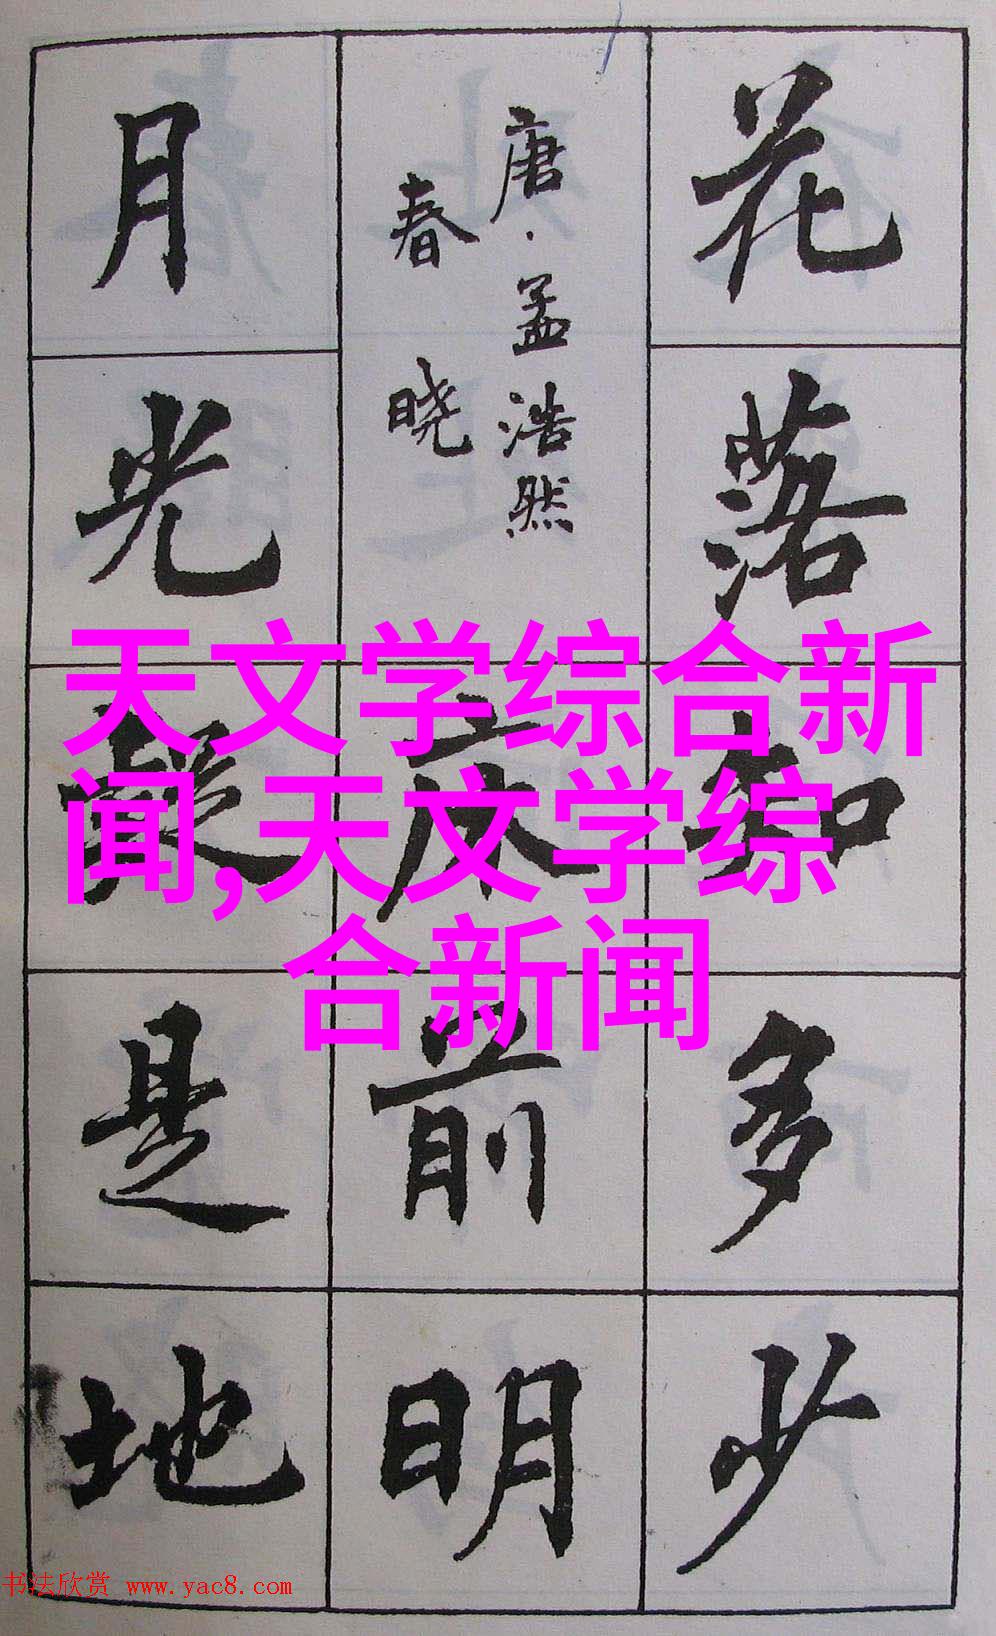 花落知多少
唐·孟浩然
春晓
床前明
月光疑是地
天文学综合新
闻,天文学综
合新闻
书法欣赏 www.yac8.com